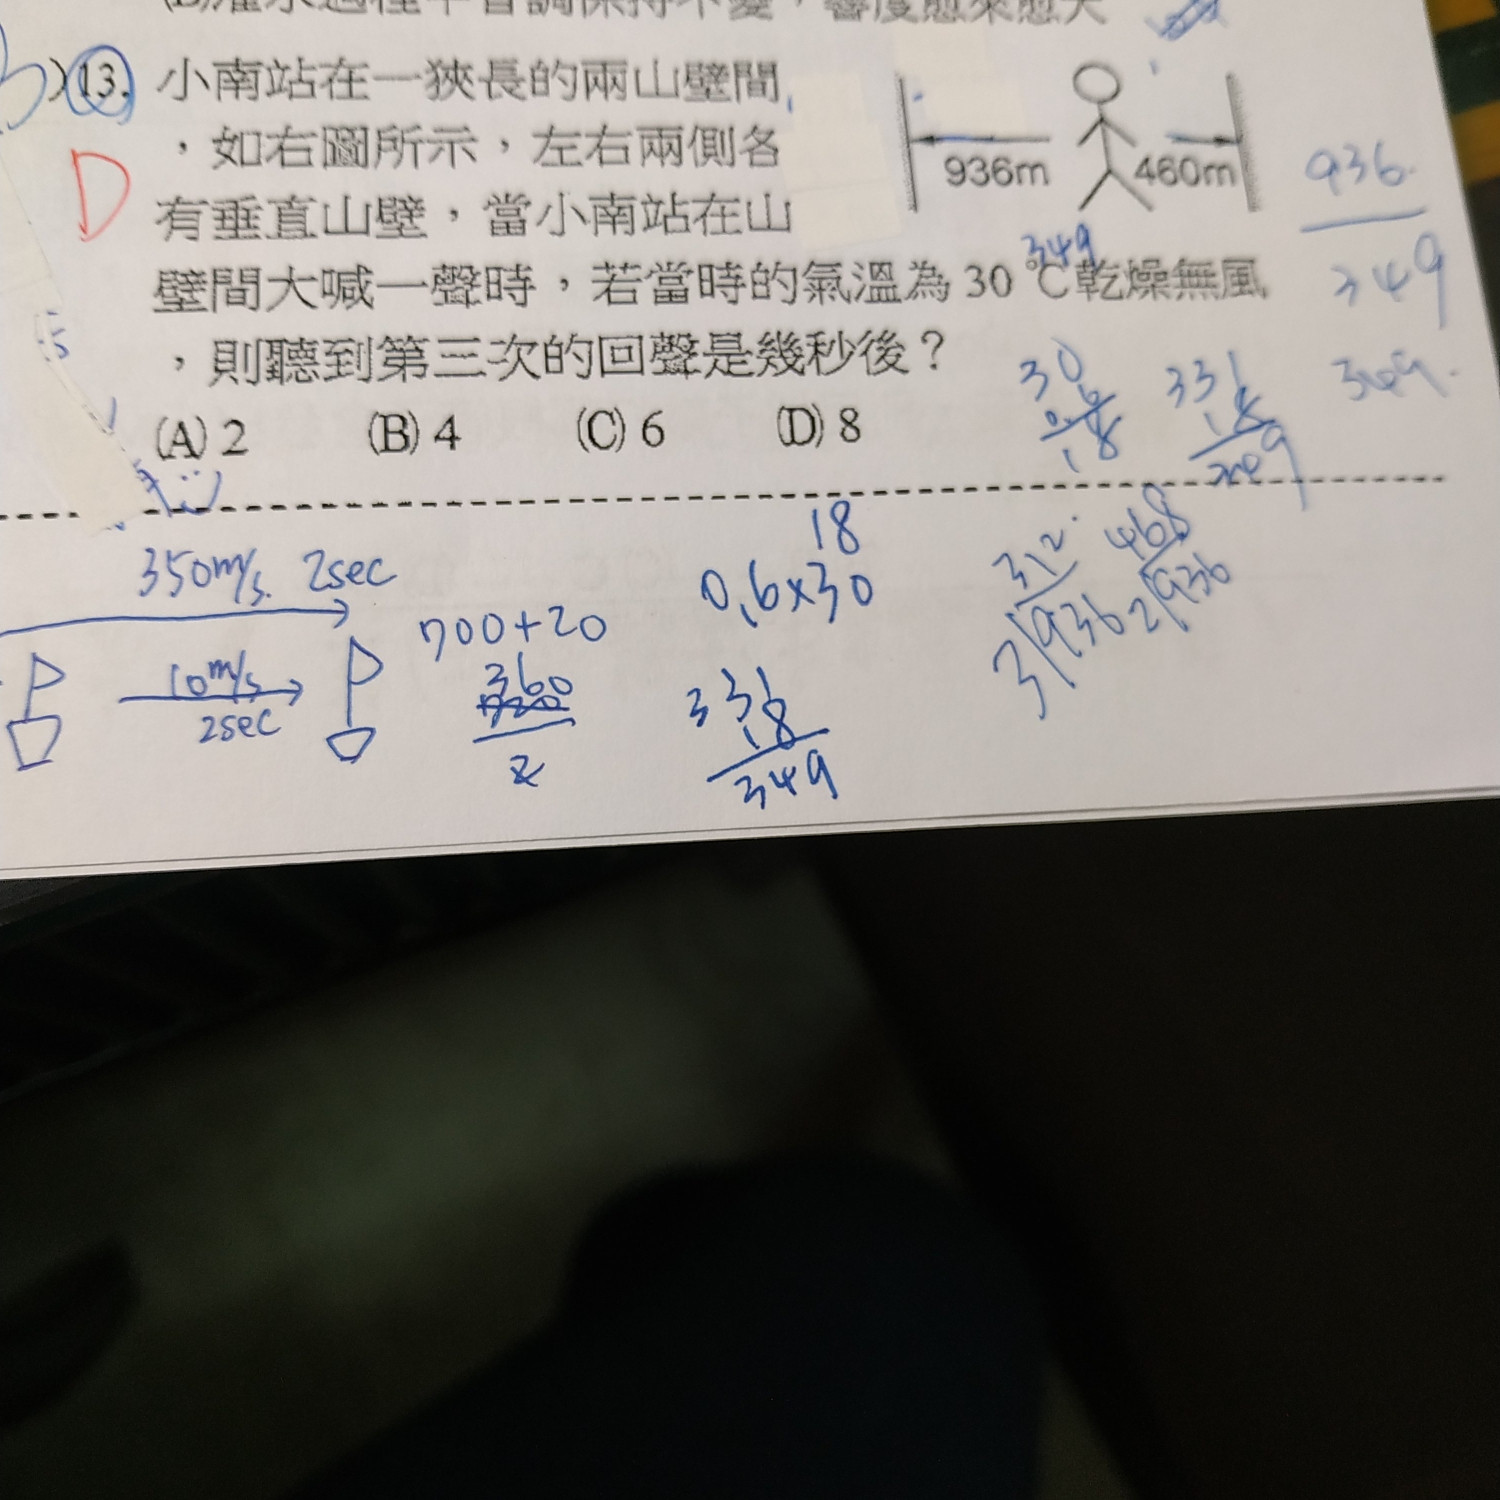 音調保持不變，響度愈來愈大
13. 小南站在一狹長的兩山壁間
，如右圖所示，左右兩側各
有垂直山壁，當小南站在山
壁間大喊一聲時，若當時的氣溫為 30 ℃乾燥無風
，則聽到第三次的回聲是幾秒後？
(A) 2 (B) 4 (C) 6 (D) 8
D
936m 460m
936
349
349
349
30
0.6
18
331
18
349
350m/s 2sec
10m/s
2sec
700+20
360
2
18
0.6×30
331
18
349
312
3 936
468
2 936